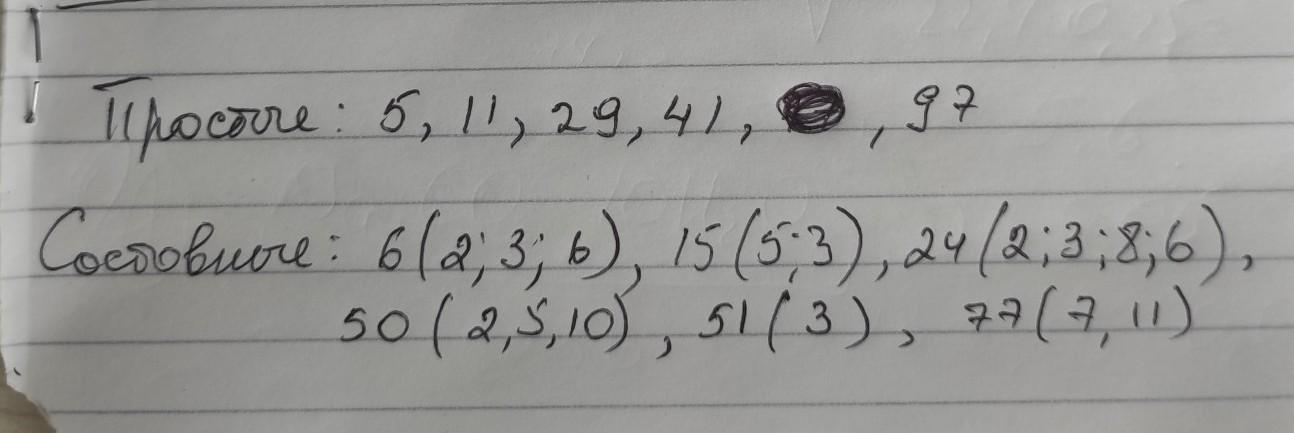 Простые: 5, 11, 29, 41, , 97
Составные: 6(2; 3; 6), 15(5;3), 24(2;3;8;6),
50(2,5,10), 51(3), 77(7,11)